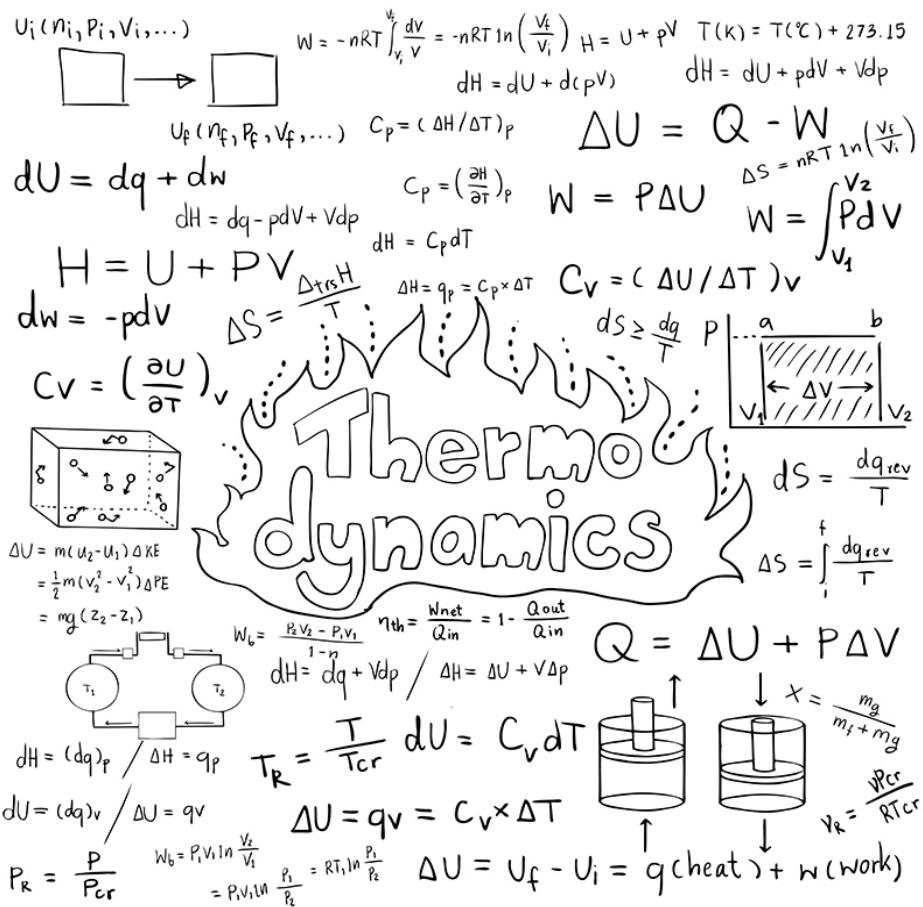 Ui(ni,Pi,Vi,...)
W = -nRT ∫Vi^Vf dV/V = -nRT ln(Vf/Vi)
H = U + pV
T(K) = T(°C) + 273.15
dH = dU + d(pV)
dH = dU + pdV + Vdp
Uf(nf,Pf,Vf,...)
Cp = (ΔH/ΔT)p
ΔU = Q - W
ΔS = nRT ln(Vf/Vi)
dU = dq + dw
Cp = (∂H/∂T)p
W = PΔU
W = ∫V1^V2 PdV
dH = dq-pdV + Vdp
dH = CpdT
H = U + PV
ΔS = ΔtrsH/T
ΔH = qp = Cp×ΔT
Cv = (ΔU/ΔT)v
dw = -pdV
dS ≥ dq/T
P a b
ΔV
V1 V2
Cv = (∂U/∂T)v
Thermo
dynamics
dS = dqrev/T
ΔU = m(u2-u1)ΔKE
= 1/2m(v2²-v1²)ΔPE
= mg(z2-z1)
ΔS = ∫i^f dqrev/T
Wb = P2V2 - P1V1/1-n
ηth = Wnet/Qin = 1 - Qout/Qin
Q = ΔU + PΔV
T1 T2
dH = dq + Vdp / ΔH = ΔU + VΔp
X = mg/mf+mg
dH = (dq)p / ΔH = qp
TR = T/Tcr
dU = CvdT
dU = (dq)v / ΔU = qv
ΔU = qv = Cv×ΔT
νR = νPcr/RTcr
PR = P/Pcr
Wb = P1V1 ln V2/V1
= P1V1 ln P1/P2 = RT1 ln P1/P2
ΔU = Uf - Ui = q(heat) + w(work)